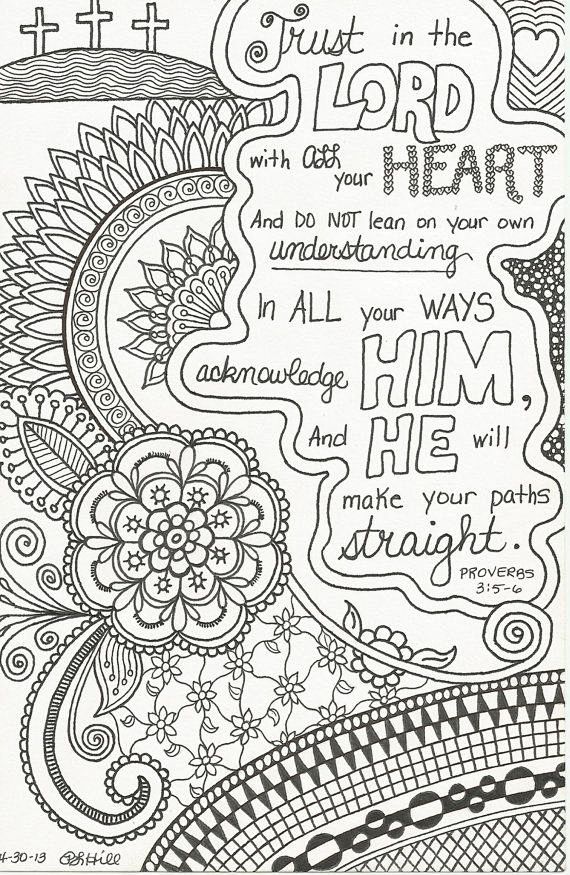 Trust in the
LORD
with All
your HEART
And DO NOT lean on your own
understanding
In ALL your WAYS
acknowledge HIM,
And HE will
make your paths
straight.
PROVERBS
3:5-6
4-30-13 PSHill